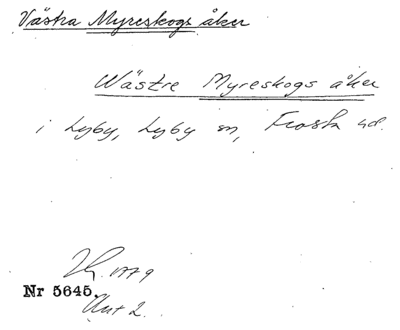 Västra Myreskogs åker
Wästre Myreskogs åker
i Lyby, Lyby sn, Frosta hd.
1779
Nr 5645.
Akt 2.